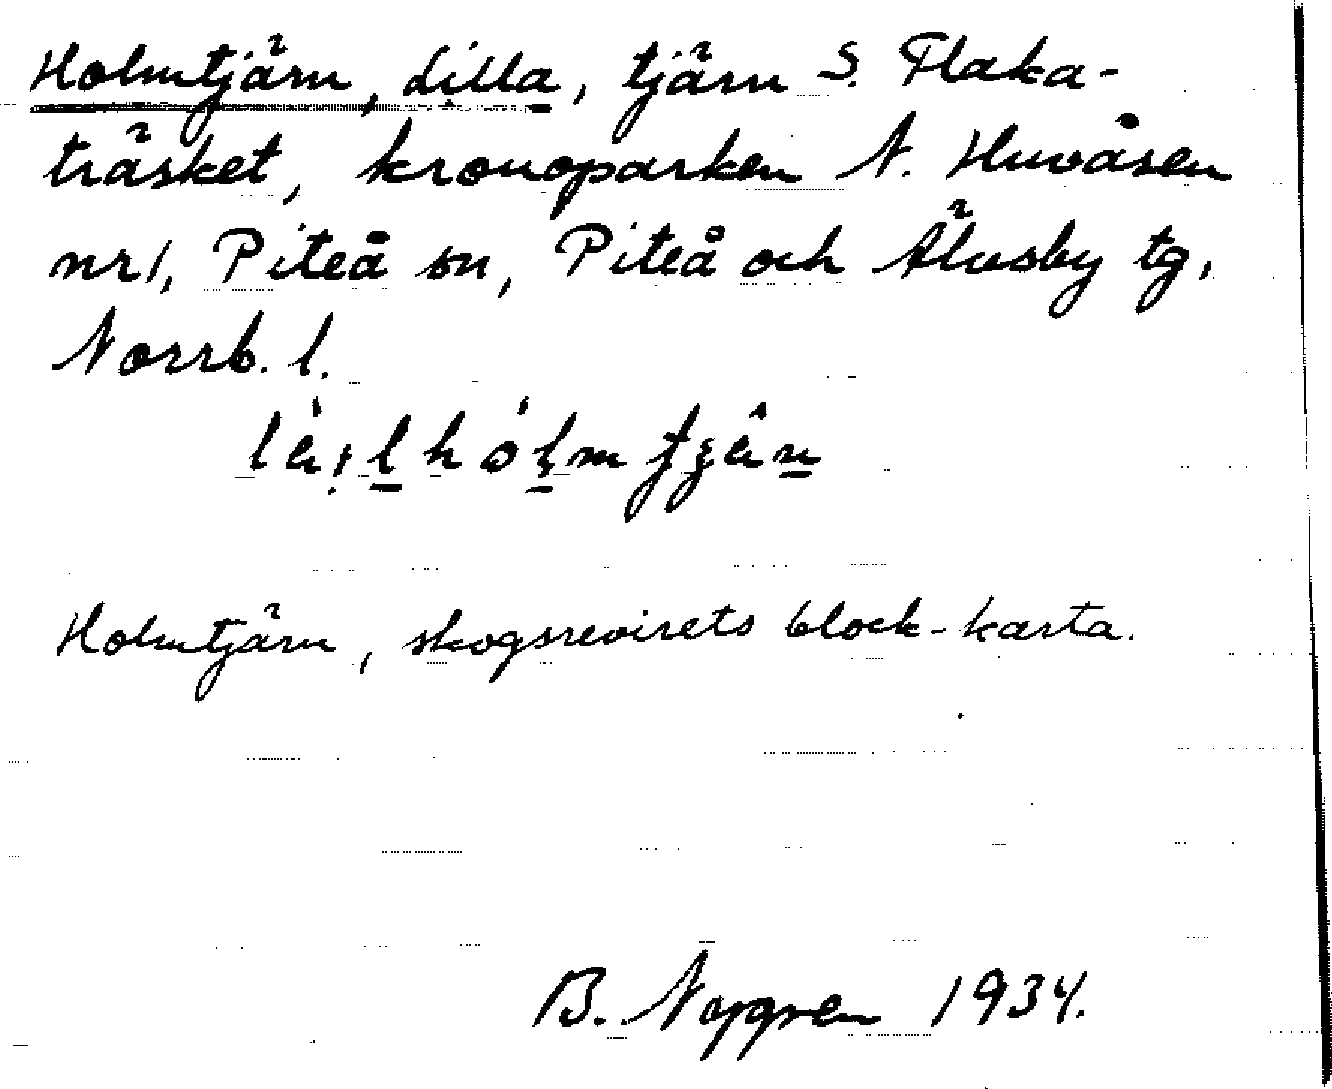 Holmtjärn, Lilla, tjärn S. Flaka-
träsket, kronoparken N. Huvåsen
nr 1, Piteå sn, Piteå och Älvsby tg,
Norrb. l.
Holmtjärn, skogsrevirets block-karta.
B. 1934.